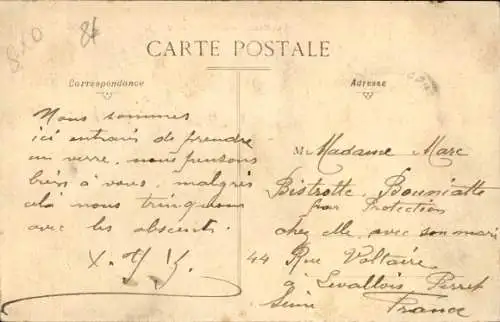 810
CARTE POSTALE
Correspondance
Adresse
Nous sommes
ici entrain de prendre
un verre, nous pensons
bien à vous, malgrés
cela nous trinquons
avec les absents.
M Madame Marc
Bistrotte
par Protection
chez elle avec son mari
44 Rue Voltaire
à Levallois Perret
Seine France